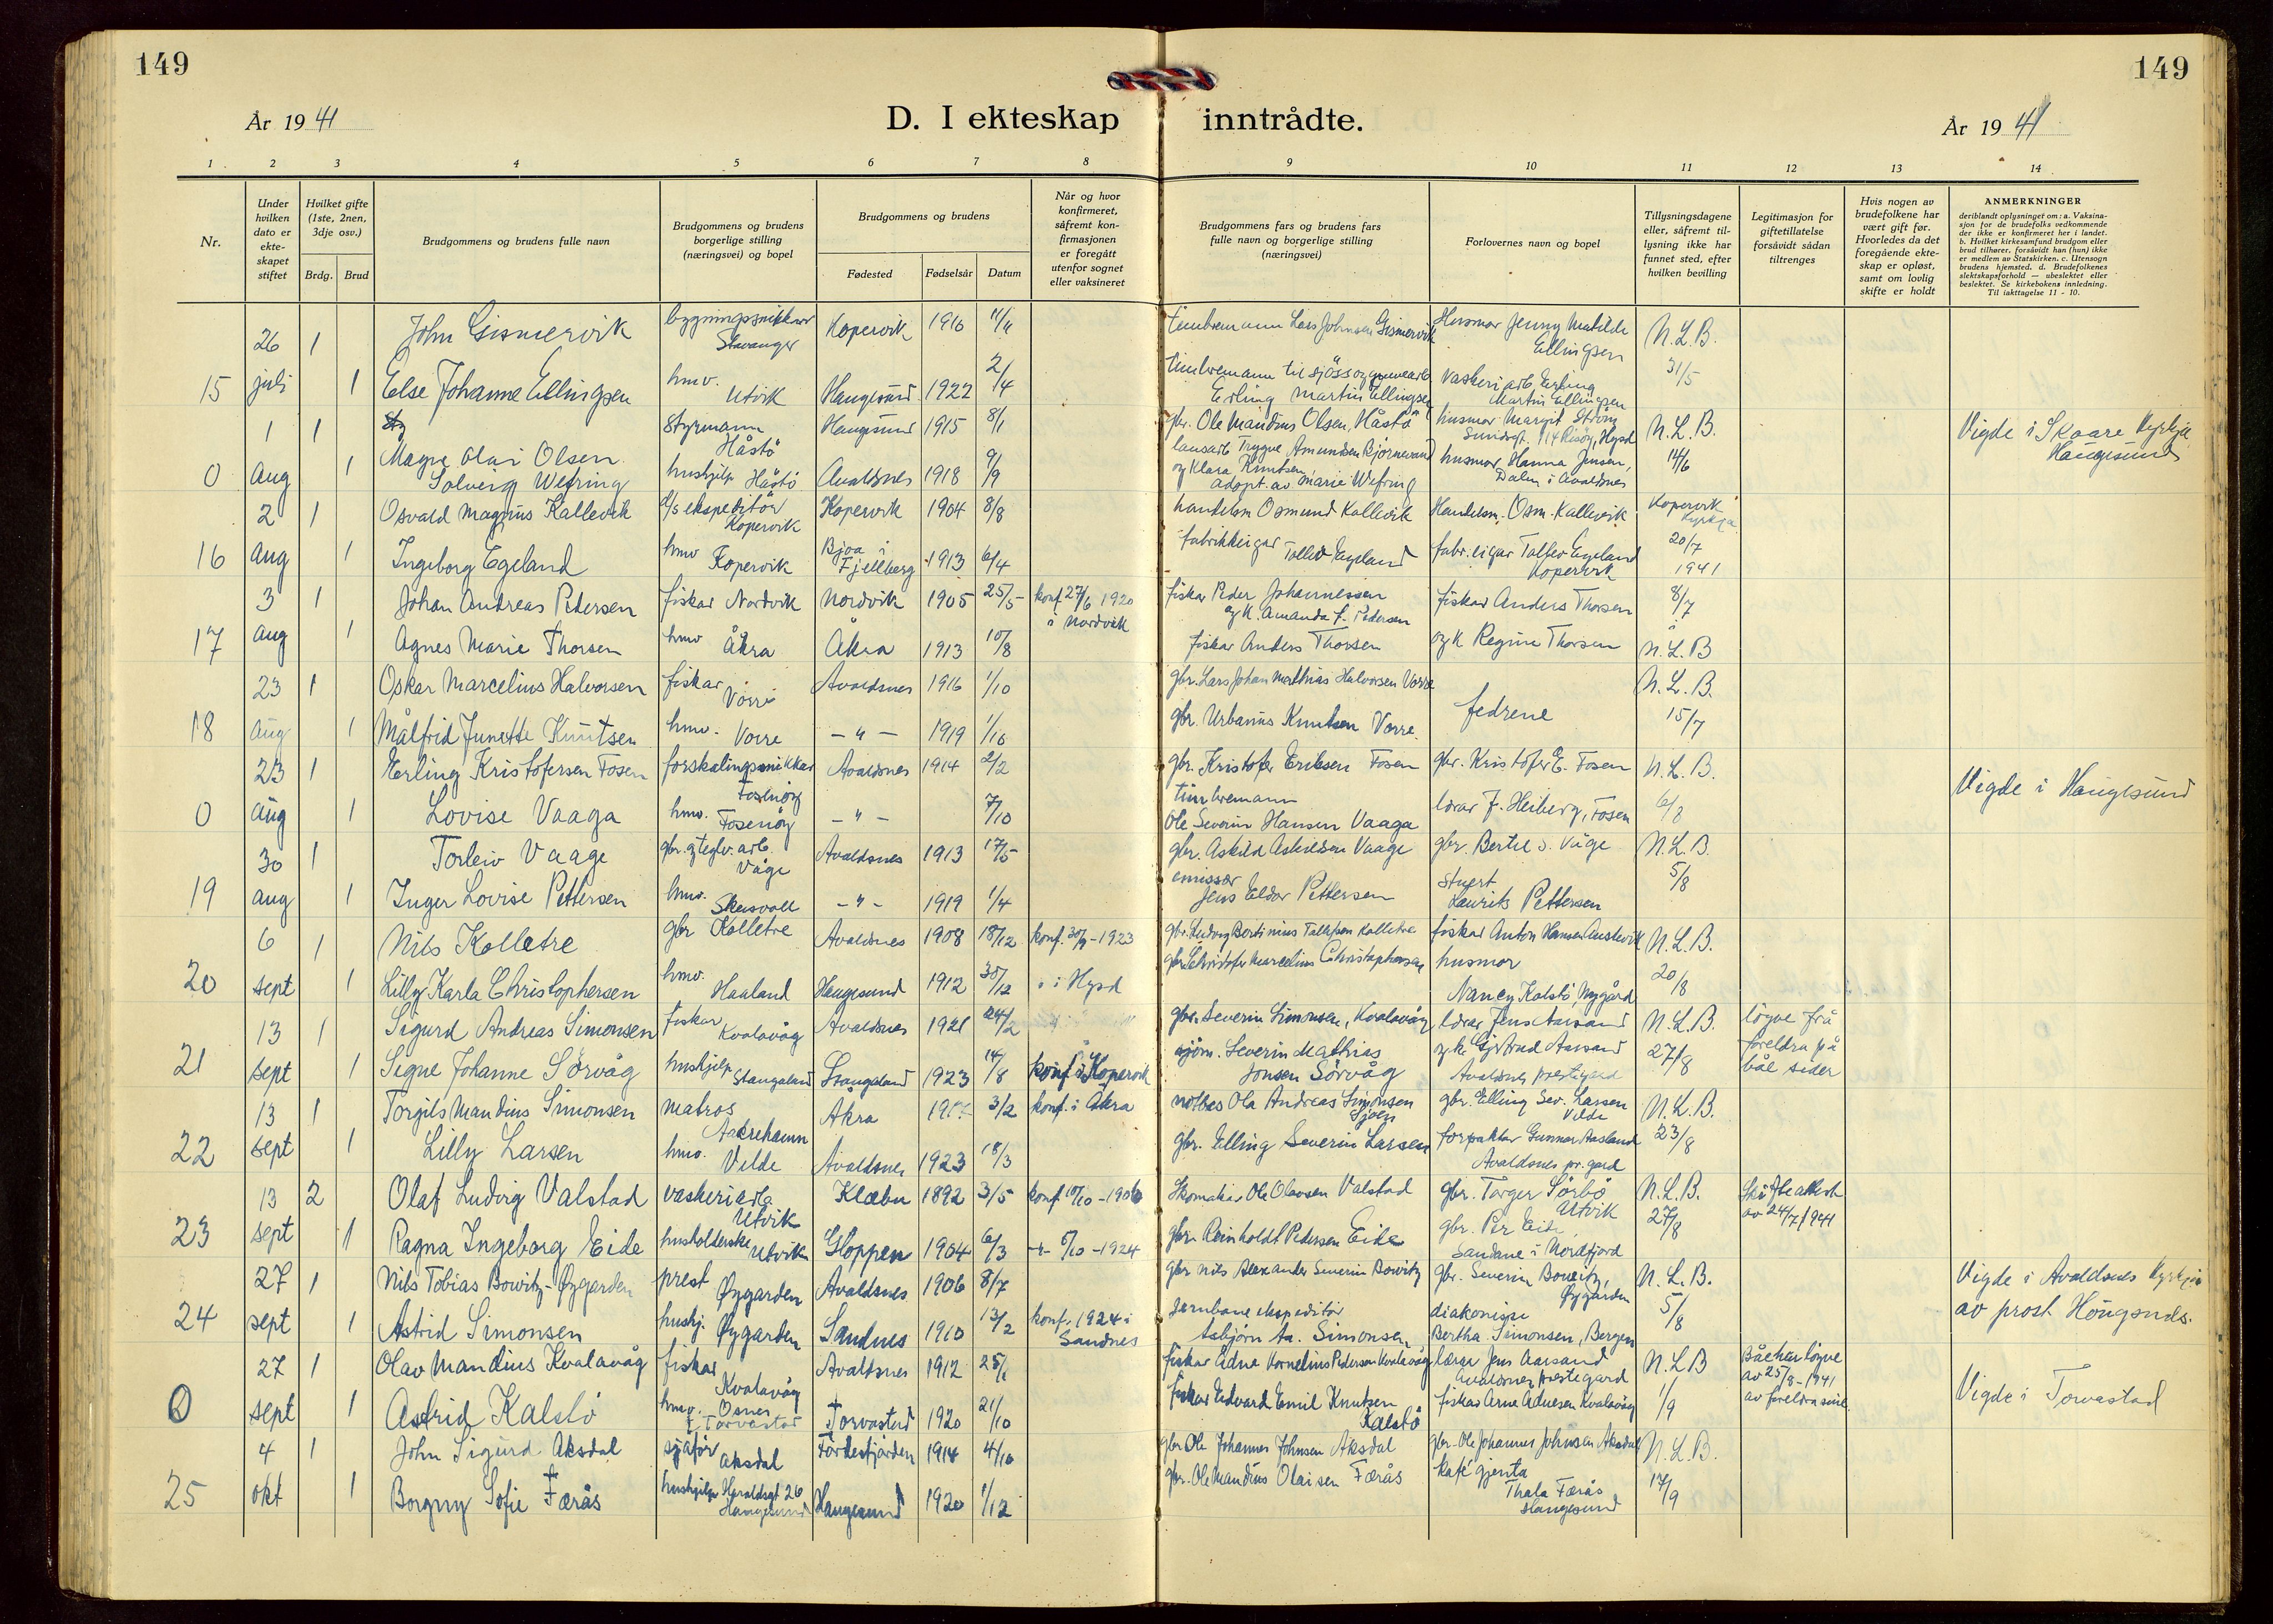 149
149
År 19 41
D. I ekteskap inntrådte.
År 19 41
1 2 3 4 5 6 7 8 9 10 11 12 13 14
Nr.
Under hvilken dato er ekteskapet stiftet
Hvilket gifte (1ste, 2nen, 3dje osv.)
Brdg. Brud
Brudgommens og brudens fulle navn
Brudgommens og brudens borgerlige stilling (næringsvei) og bopel
Brudgommens og brudens
Fødested Fødselsår Datum
Når og hvor konfirmeret, såfremt konfirmasjonen er foregått utenfor sognet eller vaksineret
Brudgommens fars og brudens fars fulle navn og borgerlige stilling (næringsvei)
Forlovernes navn og bopel
Tillysningsdagene eller, såfremt tillysning ikke har funnet sted, efter hvilken bevilling
Legitimasjon for giftetillatelse forsåvidt sådan tiltrenges
Hvis nogen av brudefolkene har vært gift før. Hvorledes da det foregående ekteskap er opløst, samt om lovlig skifte er holdt
ANMERKNINGER
deriblandt oplysninger om: a. Vaksinasjon for de brudefolks vedkommende der ikke er konfirmeret her i landet. b. Hvilket kirkesamfund brudgom eller brud tilhører, forsåvidt han (hun) ikke er medlem av Statskirken. c. Utensogn brudens hjemsted. d. Brudefolkenes slektskapsforhold — ubeslektet eller beslektet. Se kirkebokens innledning. Til iakttagelse 11 - 10.
26 1 John Gismervik bygningssnikkar Stavanger Kopervik 1916 timbremann Lars Johnsen Gismervik Husmor Jenny Matilde Ellingsen N.L.B.
15 juli 1 Else Johanne Ellingsen hmv. Utvik Haugesund 1922 2/4 timbremann til sjøss og Erling Martin Ellingsen Vaskeriarb. Erling Martin Ellingsen 31/5
1 1 Magne Olai Olsen Styrmann Håstö Haugesund 1915 8/1 gbr. Ole Mandius Olsen, Håstö husmor Margit Ström N.L.B. Vigde i Skaare Kyrkja Haugesund
0 aug 1 Solveig Wefring hushjelp Håstö Avaldsnes 1918 9/9 Trygve Amundsen og Klara Knutsen, adopt. av Marie Wefring husmor Hanna Jensen, Dalen i Avaldsnes 14/6
2 1 Osvald Magnus Kallevik d/s ekspeditör Kopervik Kopervik 1904 8/8 handelsm Osmund Kallevik Handelsm. Osm. Kallevik Kopervik Kyrkja
16 aug 1 Ingeborg Egeland hmv Kopervik Bjoa i Fjellberg 1913 6/4 fabrikkeigar Tollev Egeland fabr.eigar Tollev Egeland Kopervik 20/7 1941
3 1 Johan Andreas Pedersen fiskar Nordvik Nordvik 1905 25/5 konf. 27/6 1920 i Nordvik fiskar Peder Johannessen og k. Amanda f. Pedersen fiskar Anders Thorsen 8/7
17 aug 1 Agnes Marie Thorsen hmv Åkra Åkra 1913 10/8 fiskar Anders Thorsen og k Regine Thorsen N.L.B
23 1 Oskar Marcelius Halvorsen fiskar Vorre Avaldsnes 1916 1/10 gbr. Lars Johan Mathias Halvorsen Vorre fedrene N.L.B.
18 aug 1 Målfrid Junette Knutsen hmv. Vorre - " - 1919 1/10 gbr. Urbanus Knutsen Vorre. 15/7
23 1 Erling Kristofersen Fosen forskalingssnikkar Fosenöy Avaldsnes 1914 2/2 gbr. Kristofer Eriksen Fosen gbr. Kristofer E. Fosen N.L.B. Vigde i Haugesund
0 aug 1 Lovise Vaaga hmv. Fosenöy - " - 7/10 timbremann Ole Severin Hansen Vaaga lærar J. Heiberg, Fosen 6/8
30 1 Torleiv Vaage gbr. og teglv. arb. Våge Avaldsnes 1913 17/5 gbr. Askild Askildsen Vaage gbr. Bertel S. Våge N.L.B.
19 aug 1 Inger Lovise Pettersen hmv. Skeisvoll - " - 1919 1/4 emissær Jens Eldar Pettersen Stuert Laurits Pettersen 5/8
6 1 Nils Kolletre gbr Kolletre Avaldsnes 1908 18/12 konf. 30/9-1923 gbr. Ludvig Bertinius Tollefsen Kolletre fiskar Anton Hansen Austevik N.L.B.
20 sept 1 Lilly Karla Christophersen hmv. Haaland Haugesund 1912 30/12 i Hgsd gbr. Christofer Marcelius Christophersen husmor Nancy Kalstö, Nygård 20/8
13 1 Sigurd Andreas Simonsen fiskar Kvalavåg Avaldsnes 1921 24/2 gbr. Severin Simonsen, Kvalavåg lærar Jens Aarsand N.L.B. löyve frå
21 sept 1 Signe Johanne Sörvåg hushjelp Stangaland Stangaland 1923 14/8 konf. i Kopervik sjöm. Severin Mathias Jonsen Sörvåg og k. Gjertrud Aarsand Avaldsnes prestegard 27/8 foreldra på båe sider
13 1 Torgils Mandius Simonsen matros Aakrehamn Åkra 3/2 konf. i Åkra notbas Ola Andreas Simonsen Sjoen gbr. Elling Sev. Larsen Velde N.L.B.
22 sept 1 Lilly Larsen hmv. Velde Avaldsnes 1923 18/3 gbr. Elling Severin Larsen forpaktar Gunnar Aasland Avaldsnes pr. gard 23/8
13 2 Olaf Ludvig Valstad vaskeriarb. Utvik Klæbu 1892 3/5 konf 10/10-1906 Skomakar Ole Olavsen Valstad gbr. Torger Sörbö Utvik N.L.B. Skifteattest av 24/7 1941
23 sept 1 Ragna Ingeborg Eide husholderske Utvik Gloppen 1904 6/3 -"- 5/10-1924 gbr. Reinholdt Pedersen Eide gbr. Per Eide Sandane i Nordfjord 27/8
27 1 Nils Tobias Bowitz-Øygarden prest Øygarden Avaldsnes 1906 8/7 gbr Nils Alexander Severin Bowitz gbr. Severin Bowitz, Øygarden N.L.B. Vigde i Avaldsnes Kyrkja
24 sept 1 Astrid Simonsen hushj. Øygarden Sandnes 1910 13/2 konf. 1924 i Sandnes Jernbaneekspeditör Asbjörn Aa. Simonsen diakonisse Bertha Simonsen, Bergen 5/8 av prost Höugsnds.
27 1 Olav Mandius Kvalavåg fiskar Kvalavåg Avaldsnes 1912 25/1 fiskar Adne Kornelius Pedersen Kvalavåg lærar Jens Aarsand Avaldsnes prestegard N.L.B Båe har löyve av 25/8-1941
0 sept 1 Astrid Kalstö hmv. Osnes f. Torvastad Torvastad 1920 21/10 fiskar Edvard Emil Knutsen Kalstö fiskar Arne Adnesen Kvalavåg 1/9 av foreldra sine. Vigde i Torvastad
4 1 John Sigurd Aksdal sjåför Aksdal Fördesfjorden 1914 4/10 gbr. Ole Johannes Johnsen Aksdal gbr. Ole Johannes Johnsen Aksdal N.L.B.
25 okt 1 Borgny Sofie Færås hushjelp Haraldsgt 26 Haugesund Haugesund 1920 1/12 gbr. Ole Mandius Olaisen Færås Kafégjenta Thala Færås Haugesund 17/9